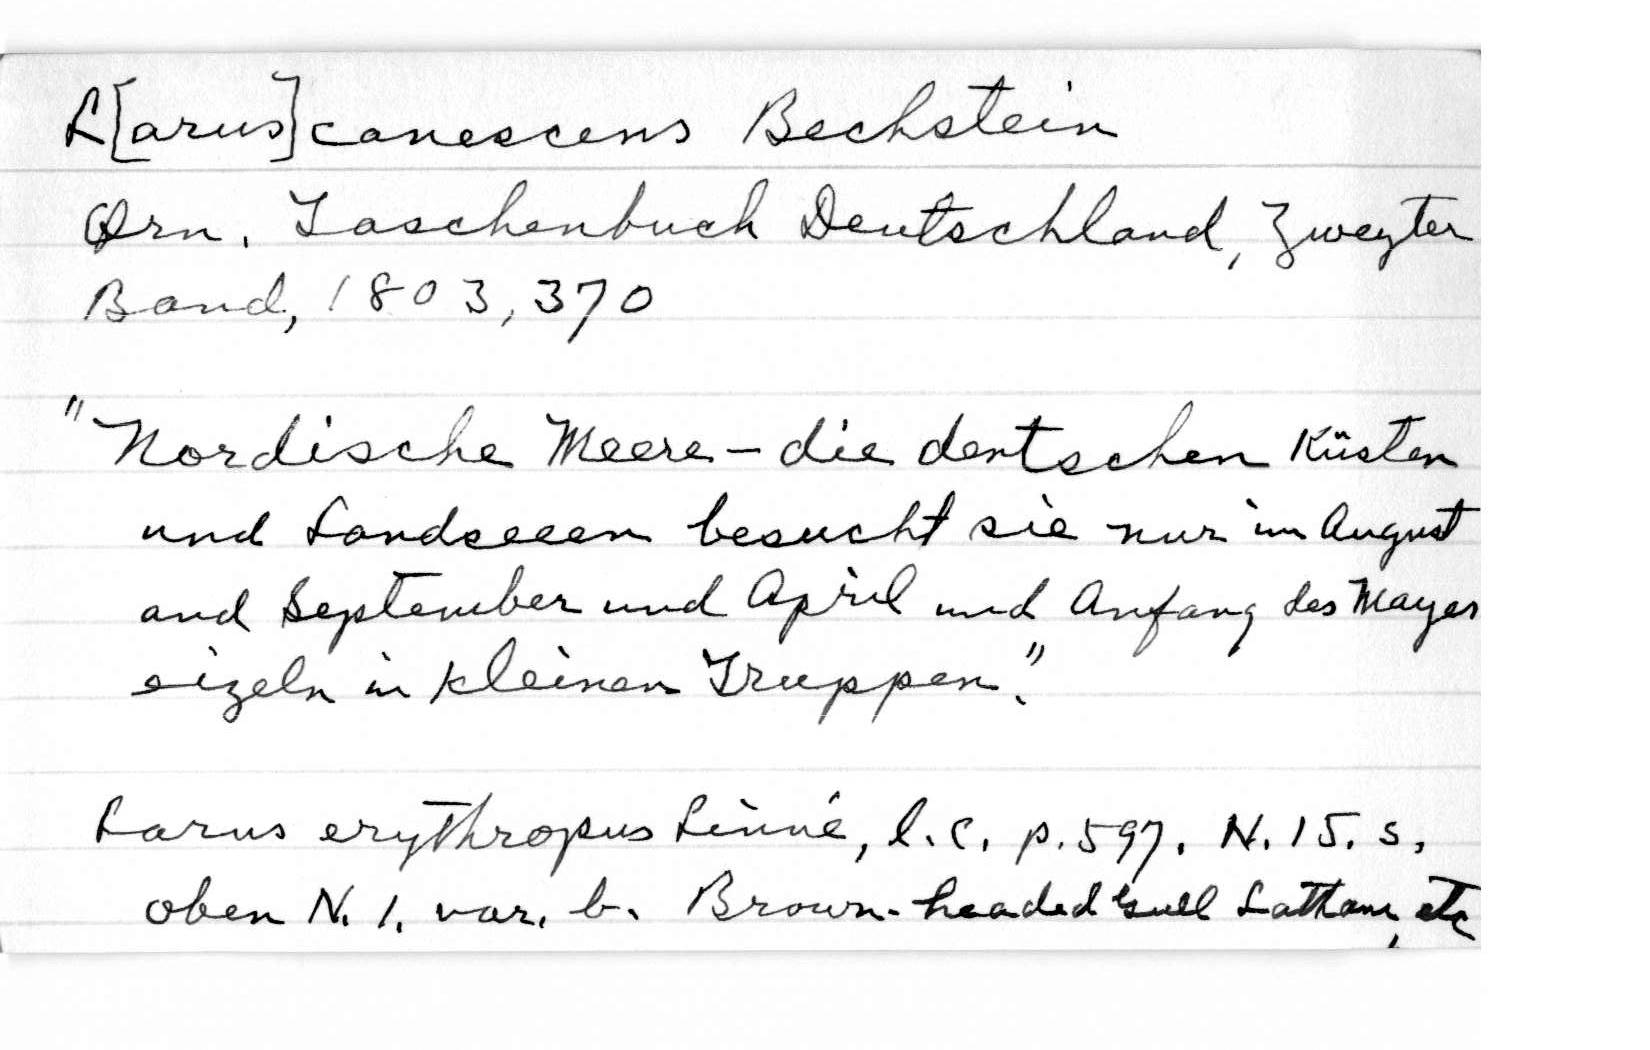 L[arus] canescens Bechstein
Orn. Taschenbuch Deutschland, Zweyter
Band, 1803, 370
"Nordische Meere - die deutschen Küsten
und Landseeen besucht sie nur im August
and September und April und Anfang des Mayes
eizeln in kleinen Truppen."
Larus erythropus Linné, l.c. p. 597. N. 15. s.
oben N. 1. var. b. Brown-headed Gull Lattam, etc